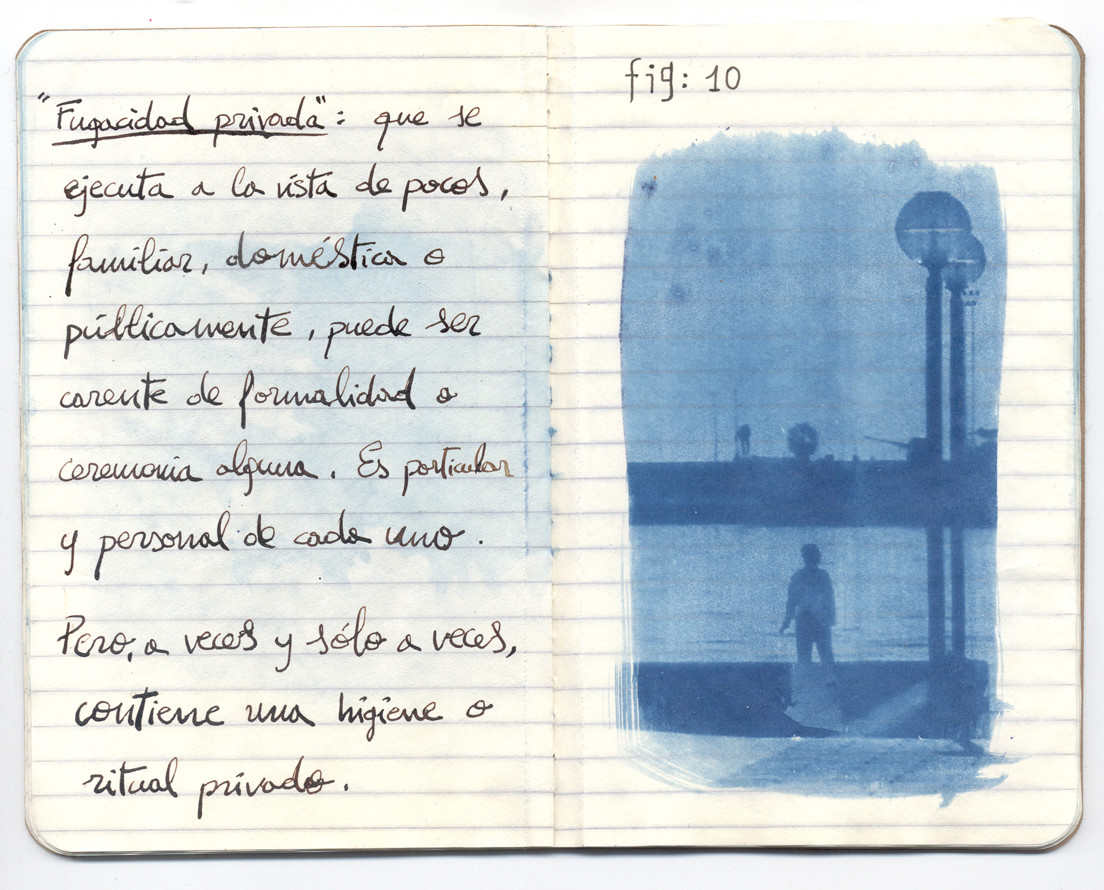 "Fugacidad privada": que se
ejecuta a la vista de pocos,
familiar, doméstica o
públicamente, puede ser
carente de formalidad o
ceremonia alguna. Es particular
y personal de cada uno.
Pero, a veces y sólo a veces,
contiene una higiene o
ritual privado.
fig: 10